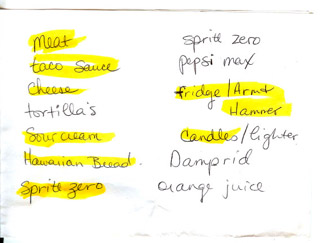 Meat
taco Sauce
Cheese
tortilla's
Sour cream
Hawaiian Bread.
Sprite zero
sprite zero
pepsi max
fridge/Arm &
Hammer
Candles/lighter
Damprid
orange juice